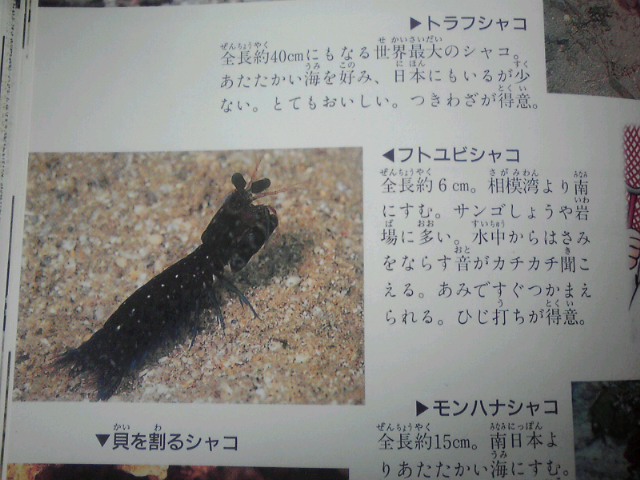 ▶トラフシャコ
全長約40cmにもなる世界最大のシャコ。
あたたかい海を好み、日本にもいるが少
ない。とてもおいしい。つきわざが得意。
◀フトユビシャコ
全長約6cm。相模湾より南
にすむ。サンゴしょうや岩
場に多い。水中からはさみ
をならす音がカチカチ聞こ
える。あみですぐつかまえ
られる。ひじ打ちが得意。
▼貝を割るシャコ
▶モンハナシャコ
全長約15cm。南日本よ
りあたたかい海にすむ。